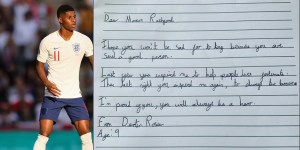 11
Dear Marcus Rashford
I hope you won't be sad for to long because you are
such a good person.
Last year you inspired me to help people less fortunate.
Then last night you inspired me again, to always be
I'm proud of you, you will always be a hero
From Dexter Rosier
Age: 9